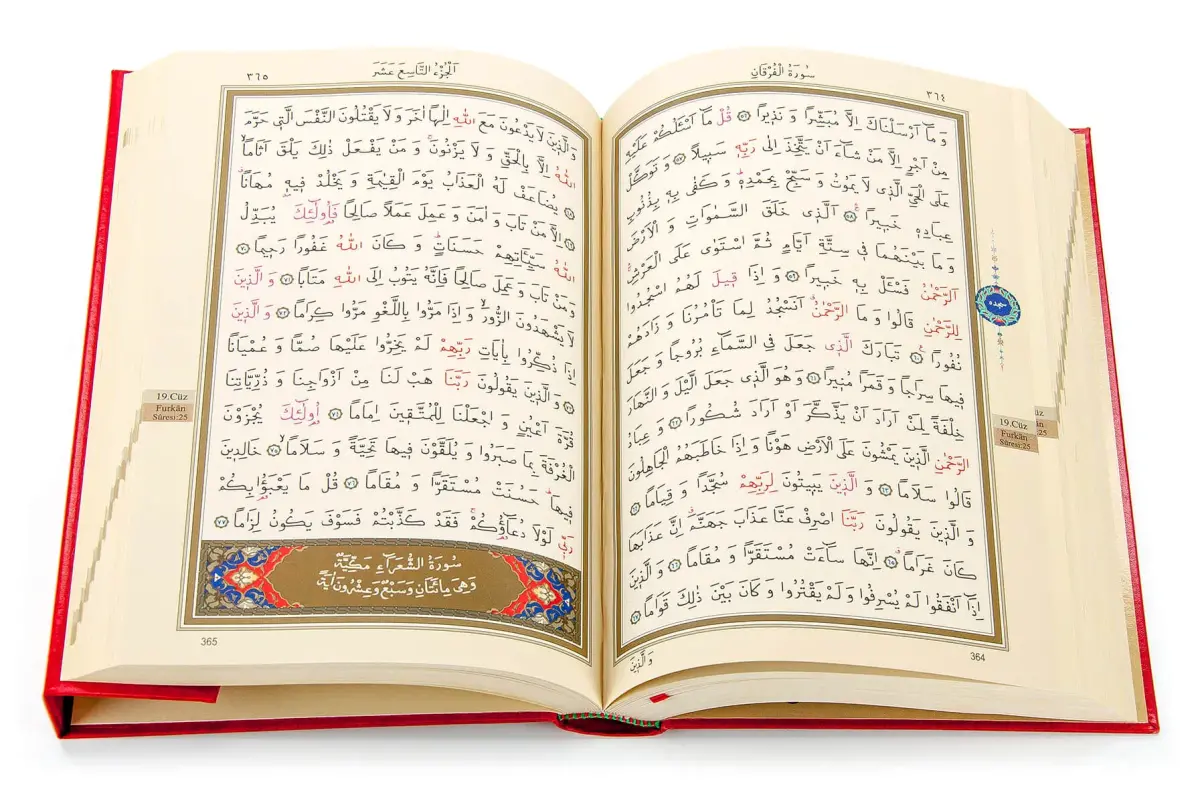 سُورَةُ الْفُرْقَانِ
٣٦٤
وَمَٓا اَرْسَلْنَاكَ اِلَّا مُبَشِّراً وَنَذٖيراً ﴿٥٦﴾ قُلْ مَٓا اَسْـَٔلُكُمْ عَلَيْهِ
مِنْ اَجْرٍ اِلَّا مَنْ شَٓاءَ اَنْ يَتَّخِذَ اِلٰى رَبِّهٖ سَبٖيلاً ﴿٥٧﴾ وَتَوَكَّلْ
عَلَى الْحَيِّ الَّذٖى لَا يَمُوتُ وَسَبِّحْ بِحَمْدِهٖ وَكَفٰى بِهٖ بِذُنُوبِ
عِبَادِهٖ خَبٖيراً ﴿٥٨﴾ اَلَّذٖى خَلَقَ السَّمٰوَاتِ وَالْاَرْضَ
وَمَا بَيْنَهُمَا فٖى سِتَّةِ اَيَّامٍ ثُمَّ اسْتَوٰى عَلَى الْعَرْشِ
اَلرَّحْمٰنُ فَسْـَٔلْ بِهٖ خَبٖيراً ﴿٥٩﴾ وَاِذَا قٖيلَ لَهُمُ اسْجُدُوا
لِلرَّحْمٰنِ قَالُوا وَمَا الرَّحْمٰنُ اَنَسْجُدُ لِمَا تَأْمُرُنَا وَزَادَهُمْ
نُفُوراً ﴿٦٠﴾ تَبَارَكَ الَّذٖى جَعَلَ فِى السَّمَٓاءِ بُرُوجاً وَجَعَلَ
فٖيهَا سِرَاجاً وَقَمَراً مُنٖيراً ﴿٦١﴾ وَهُوَ الَّذٖى جَعَلَ الَّيْلَ وَالنَّهَارَ
خِلْفَةً لِمَنْ اَرَادَ اَنْ يَذَّكَّرَ اَوْ اَرَادَ شُكُوراً ﴿٦٢﴾ وَعِبَادُ
الرَّحْمٰنِ الَّذٖينَ يَمْشُونَ عَلَى الْاَرْضِ هَوْناً وَاِذَا خَاطَبَهُمُ الْجَاهِلُونَ
قَالُوا سَلَاماً ﴿٦٣﴾ وَالَّذٖينَ يَبٖيتُونَ لِرَبِّهِمْ سُجَّداً وَقِيَاماً ﴿٦٤﴾
وَالَّذٖينَ يَقُولُونَ رَبَّنَا اصْرِفْ عَنَّا عَذَابَ جَهَنَّمَ اِنَّ عَذَابَهَا
كَانَ غَرَاماً ﴿٦٥﴾ اِنَّهَا سَٓاءَتْ مُسْتَقَرًّا وَمُقَاماً ﴿٦٦﴾ وَالَّذٖينَ
اِذَٓا اَنْفَقُوا لَمْ يُسْرِفُوا وَلَمْ يَقْتُرُوا وَكَانَ بَيْنَ ذٰلِكَ قَوَاماً ﴿٦٧﴾
وَالَّذٖينَ
364
سجده
19.Cüz
Furkân
Sûresi:25
üz
ân
25
اَلْجُزْءُ التَّاسِعَ عَشَرَ
٣٦٥
وَالَّذٖينَ لَا يَدْعُونَ مَعَ اللّٰهِ اِلٰهاً اٰخَرَ وَلَا يَقْتُلُونَ النَّفْسَ الَّتٖى حَرَّمَ
اللّٰهُ اِلَّا بِالْحَقِّ وَلَا يَزْنُونَ وَمَنْ يَفْعَلْ ذٰلِكَ يَلْقَ اَثَاماً
﴿٦٨﴾ يُضَاعَفْ لَهُ الْعَذَابُ يَوْمَ الْقِيٰمَةِ وَيَخْلُدْ فٖيهٖ مُهَاناً
﴿٦٩﴾ اِلَّا مَنْ تَابَ وَاٰمَنَ وَعَمِلَ عَمَلاً صَالِحاً فَاُو۬لٰٓئِكَ يُبَدِّلُ
اللّٰهُ سَيِّـَٔاتِهِمْ حَسَنَاتٍ وَكَانَ اللّٰهُ غَفُوراً رَحٖيماً ﴿٧٠﴾
وَمَنْ تَابَ وَعَمِلَ صَالِحاً فَاِنَّهُ يَتُوبُ اِلَى اللّٰهِ مَتَاباً ﴿٧١﴾ وَالَّذٖينَ
لَا يَشْهَدُونَ الزُّورَ وَاِذَا مَرُّوا بِاللَّغْوِ مَرُّوا كِرَاماً ﴿٧٢﴾ وَالَّذٖينَ
اِذَا ذُكِّرُوا بِاٰيَاتِ رَبِّهِمْ لَمْ يَخِرُّوا عَلَيْهَا صُمًّا وَعُمْيَاناً
﴿٧٣﴾ وَالَّذٖينَ يَقُولُونَ رَبَّنَا هَبْ لَنَا مِنْ اَزْوَاجِنَا وَذُرِّيَّاتِنَا
قُرَّةَ اَعْيُنٍ وَاجْعَلْنَا لِلْمُتَّقٖينَ اِمَاماً ﴿٧٤﴾ اُو۬لٰٓئِكَ يُجْزَوْنَ
الْغُرْفَةَ بِمَا صَبَرُوا وَيُلَقَّوْنَ فٖيهَا تَحِيَّةً وَسَلَاماً ﴿٧٥﴾ خَالِدٖينَ
فٖيهَا حَسُنَتْ مُسْتَقَرًّا وَمُقَاماً ﴿٧٦﴾ قُلْ مَا يَعْبَؤُ۬ا بِكُمْ
رَبّٖى لَوْلَا دُعَٓاؤُ۬كُمْ فَقَدْ كَذَّبْتُمْ فَسَوْفَ يَكُونُ لِزَاماً ﴿٧٧﴾
سُورَةُ الشُّعَرَٓاءِ مَكِّيَّةٌ
وَهِىَ مِائَتَانِ وَسَبْعٌ وَعِشْرُونَ اٰيَةً
365
19.Cüz
Furkân
Sûresi:25